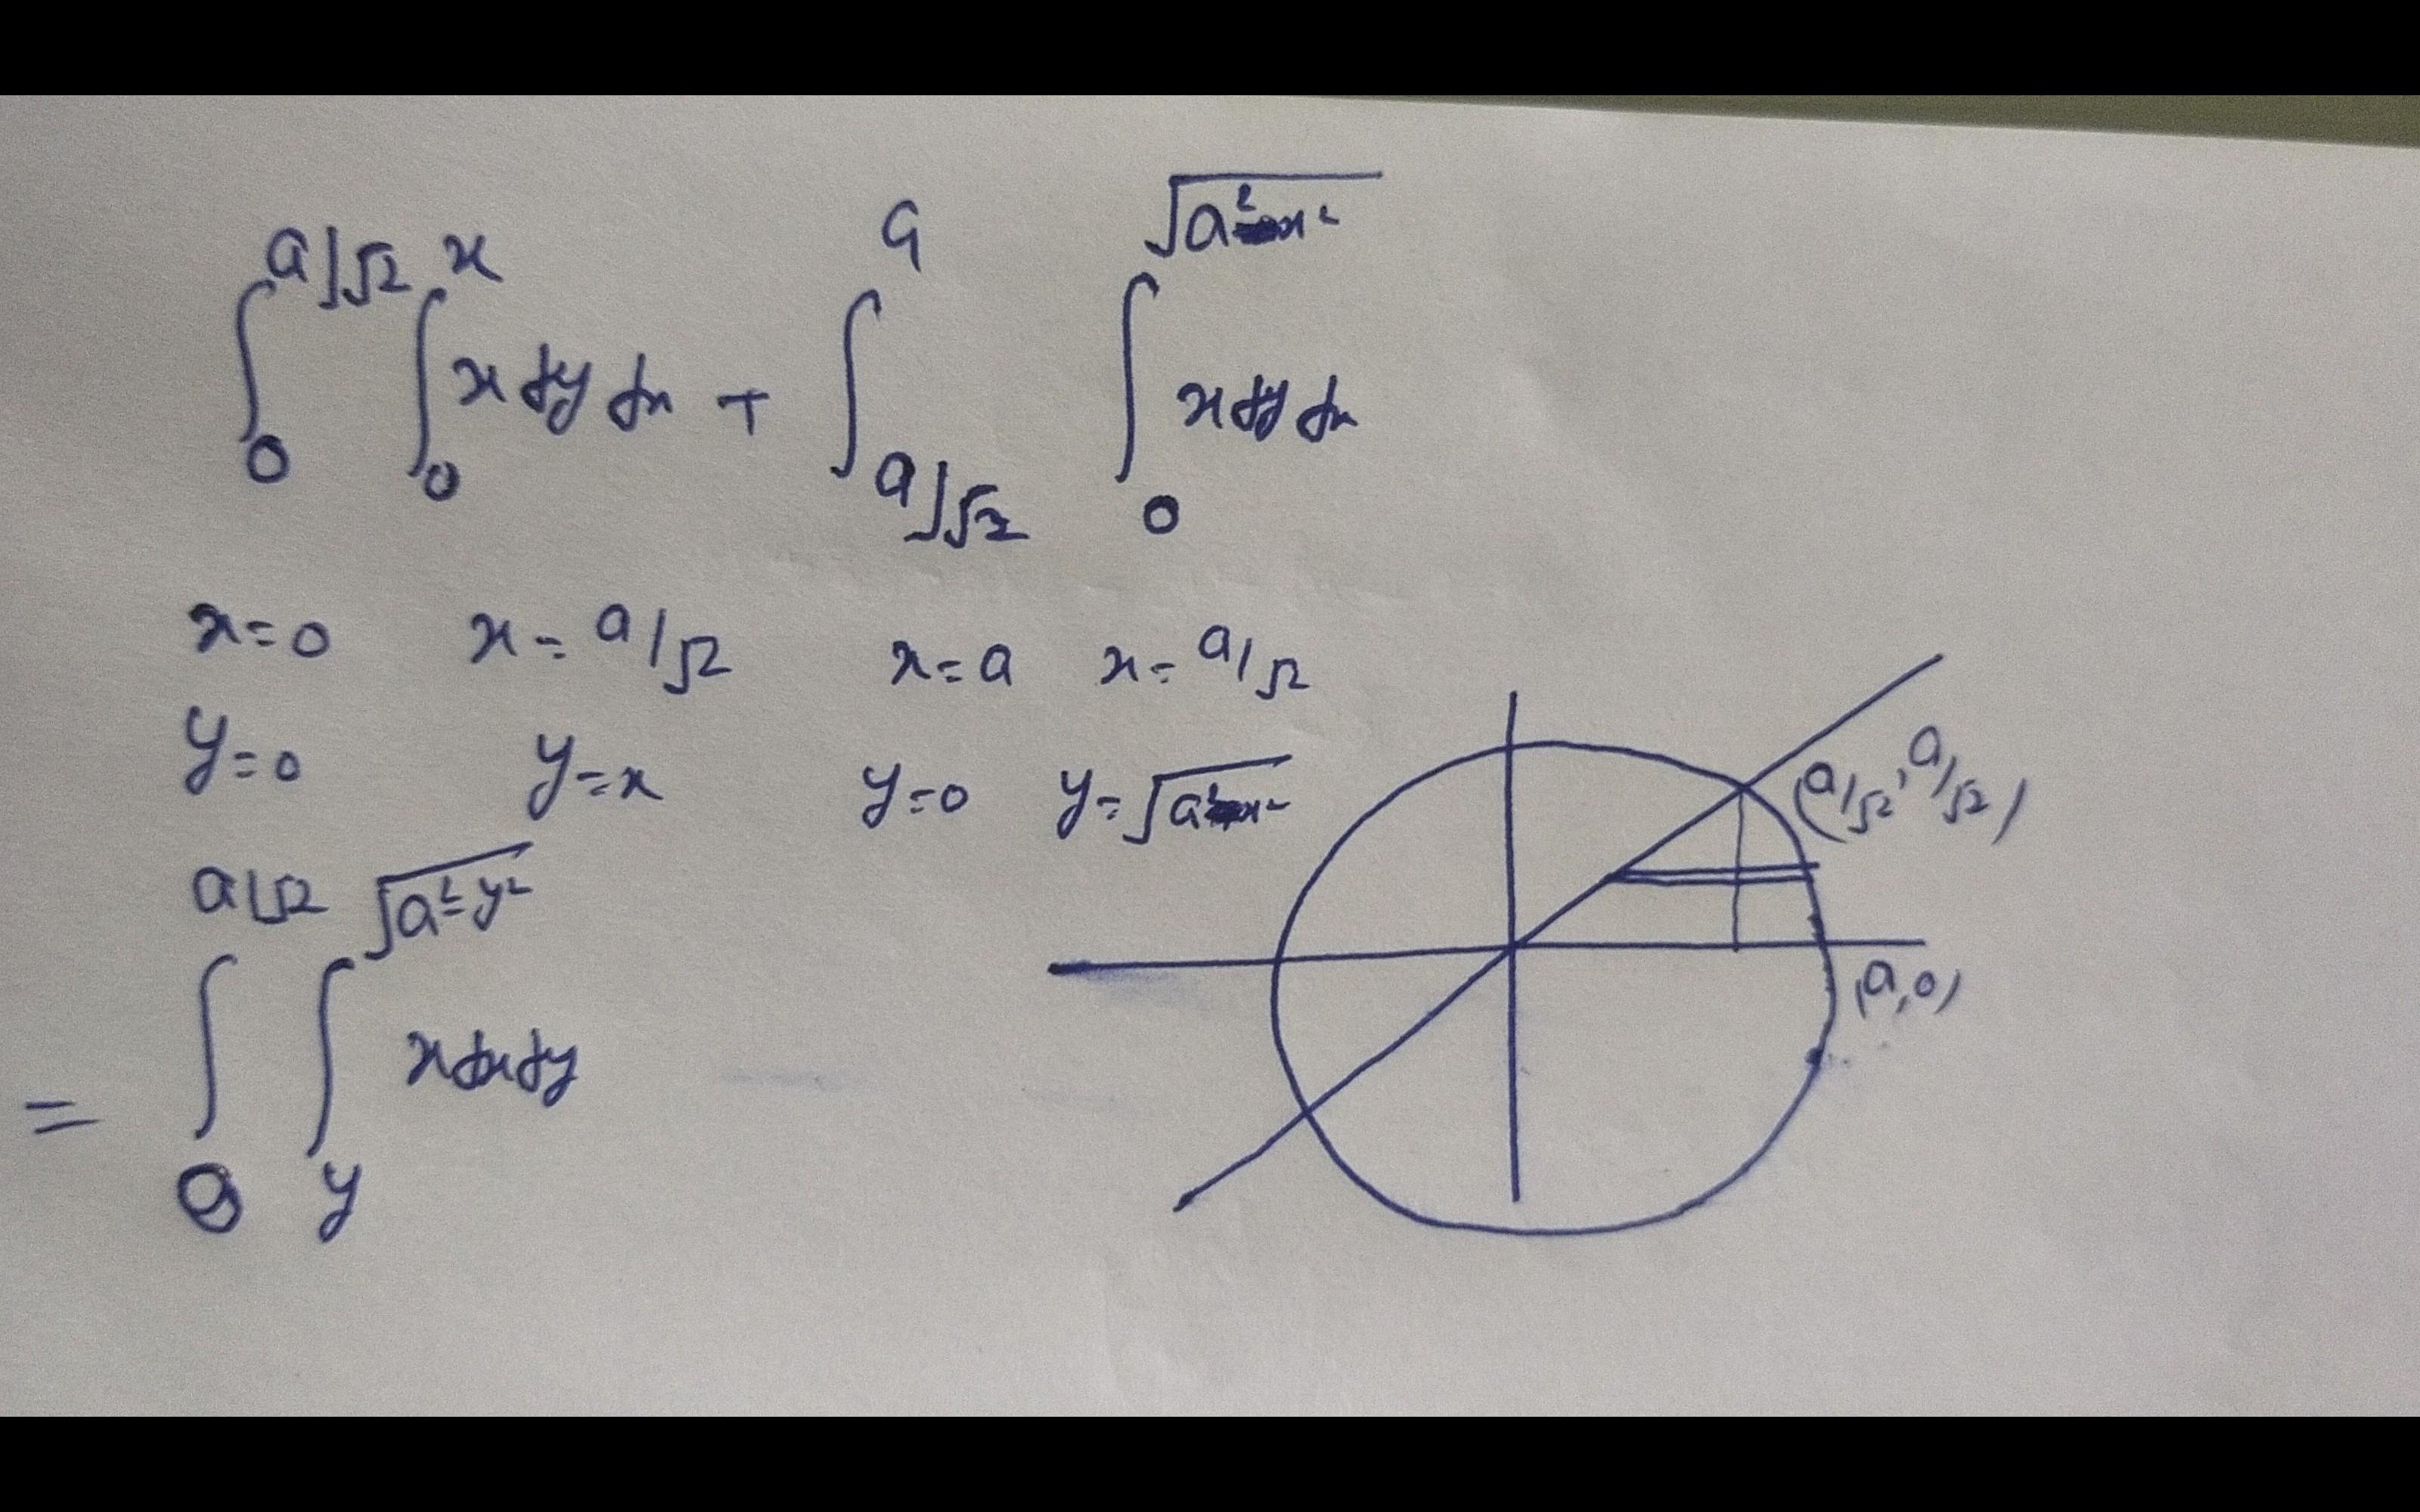 ∫₀^{a/√2} ∫₀^{x} x dy dx + ∫_{a/√2}^{a} ∫₀^{√(a²-x²)} x dy dx
x=0 x=a/√2 x=a x=a/√2
y=0 y=x y=0 y=√(a²-x²)
(a/√2, a/√2)
(a,0)
= ∫₀^{a/√2} ∫_{y}^{√(a²-y²)} x dx dy